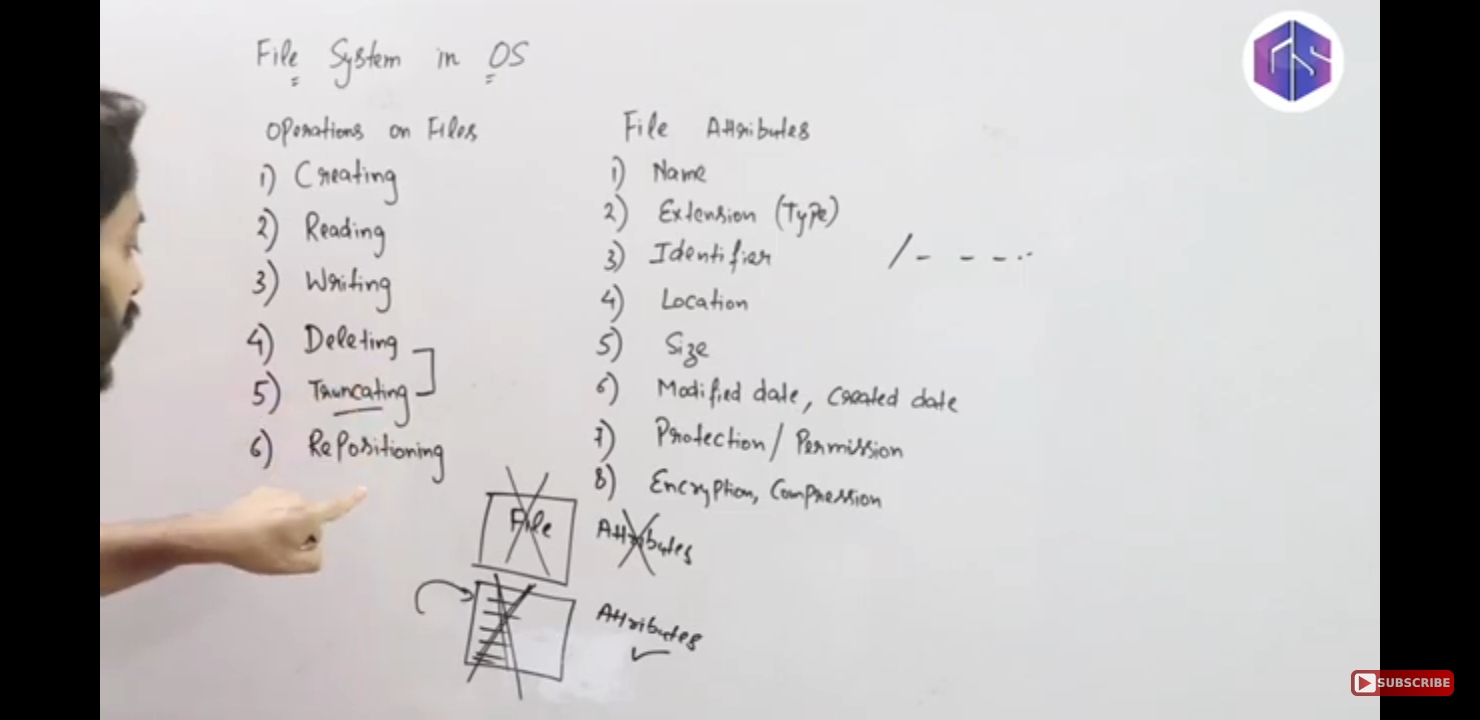 File System in OS
Operations on Files
1) Creating
2) Reading
3) Writing
4) Deleting
5) Truncating
6) RePositioning
File Attributes
1) Name
2) Extension (Type)
3) Identifier
4) Location
5) Size
6) Modified date, Created date
7) Protection / Permission
8) Encryption, Compression
File
Attributes
Attributes
GS
SUBSCRIBE